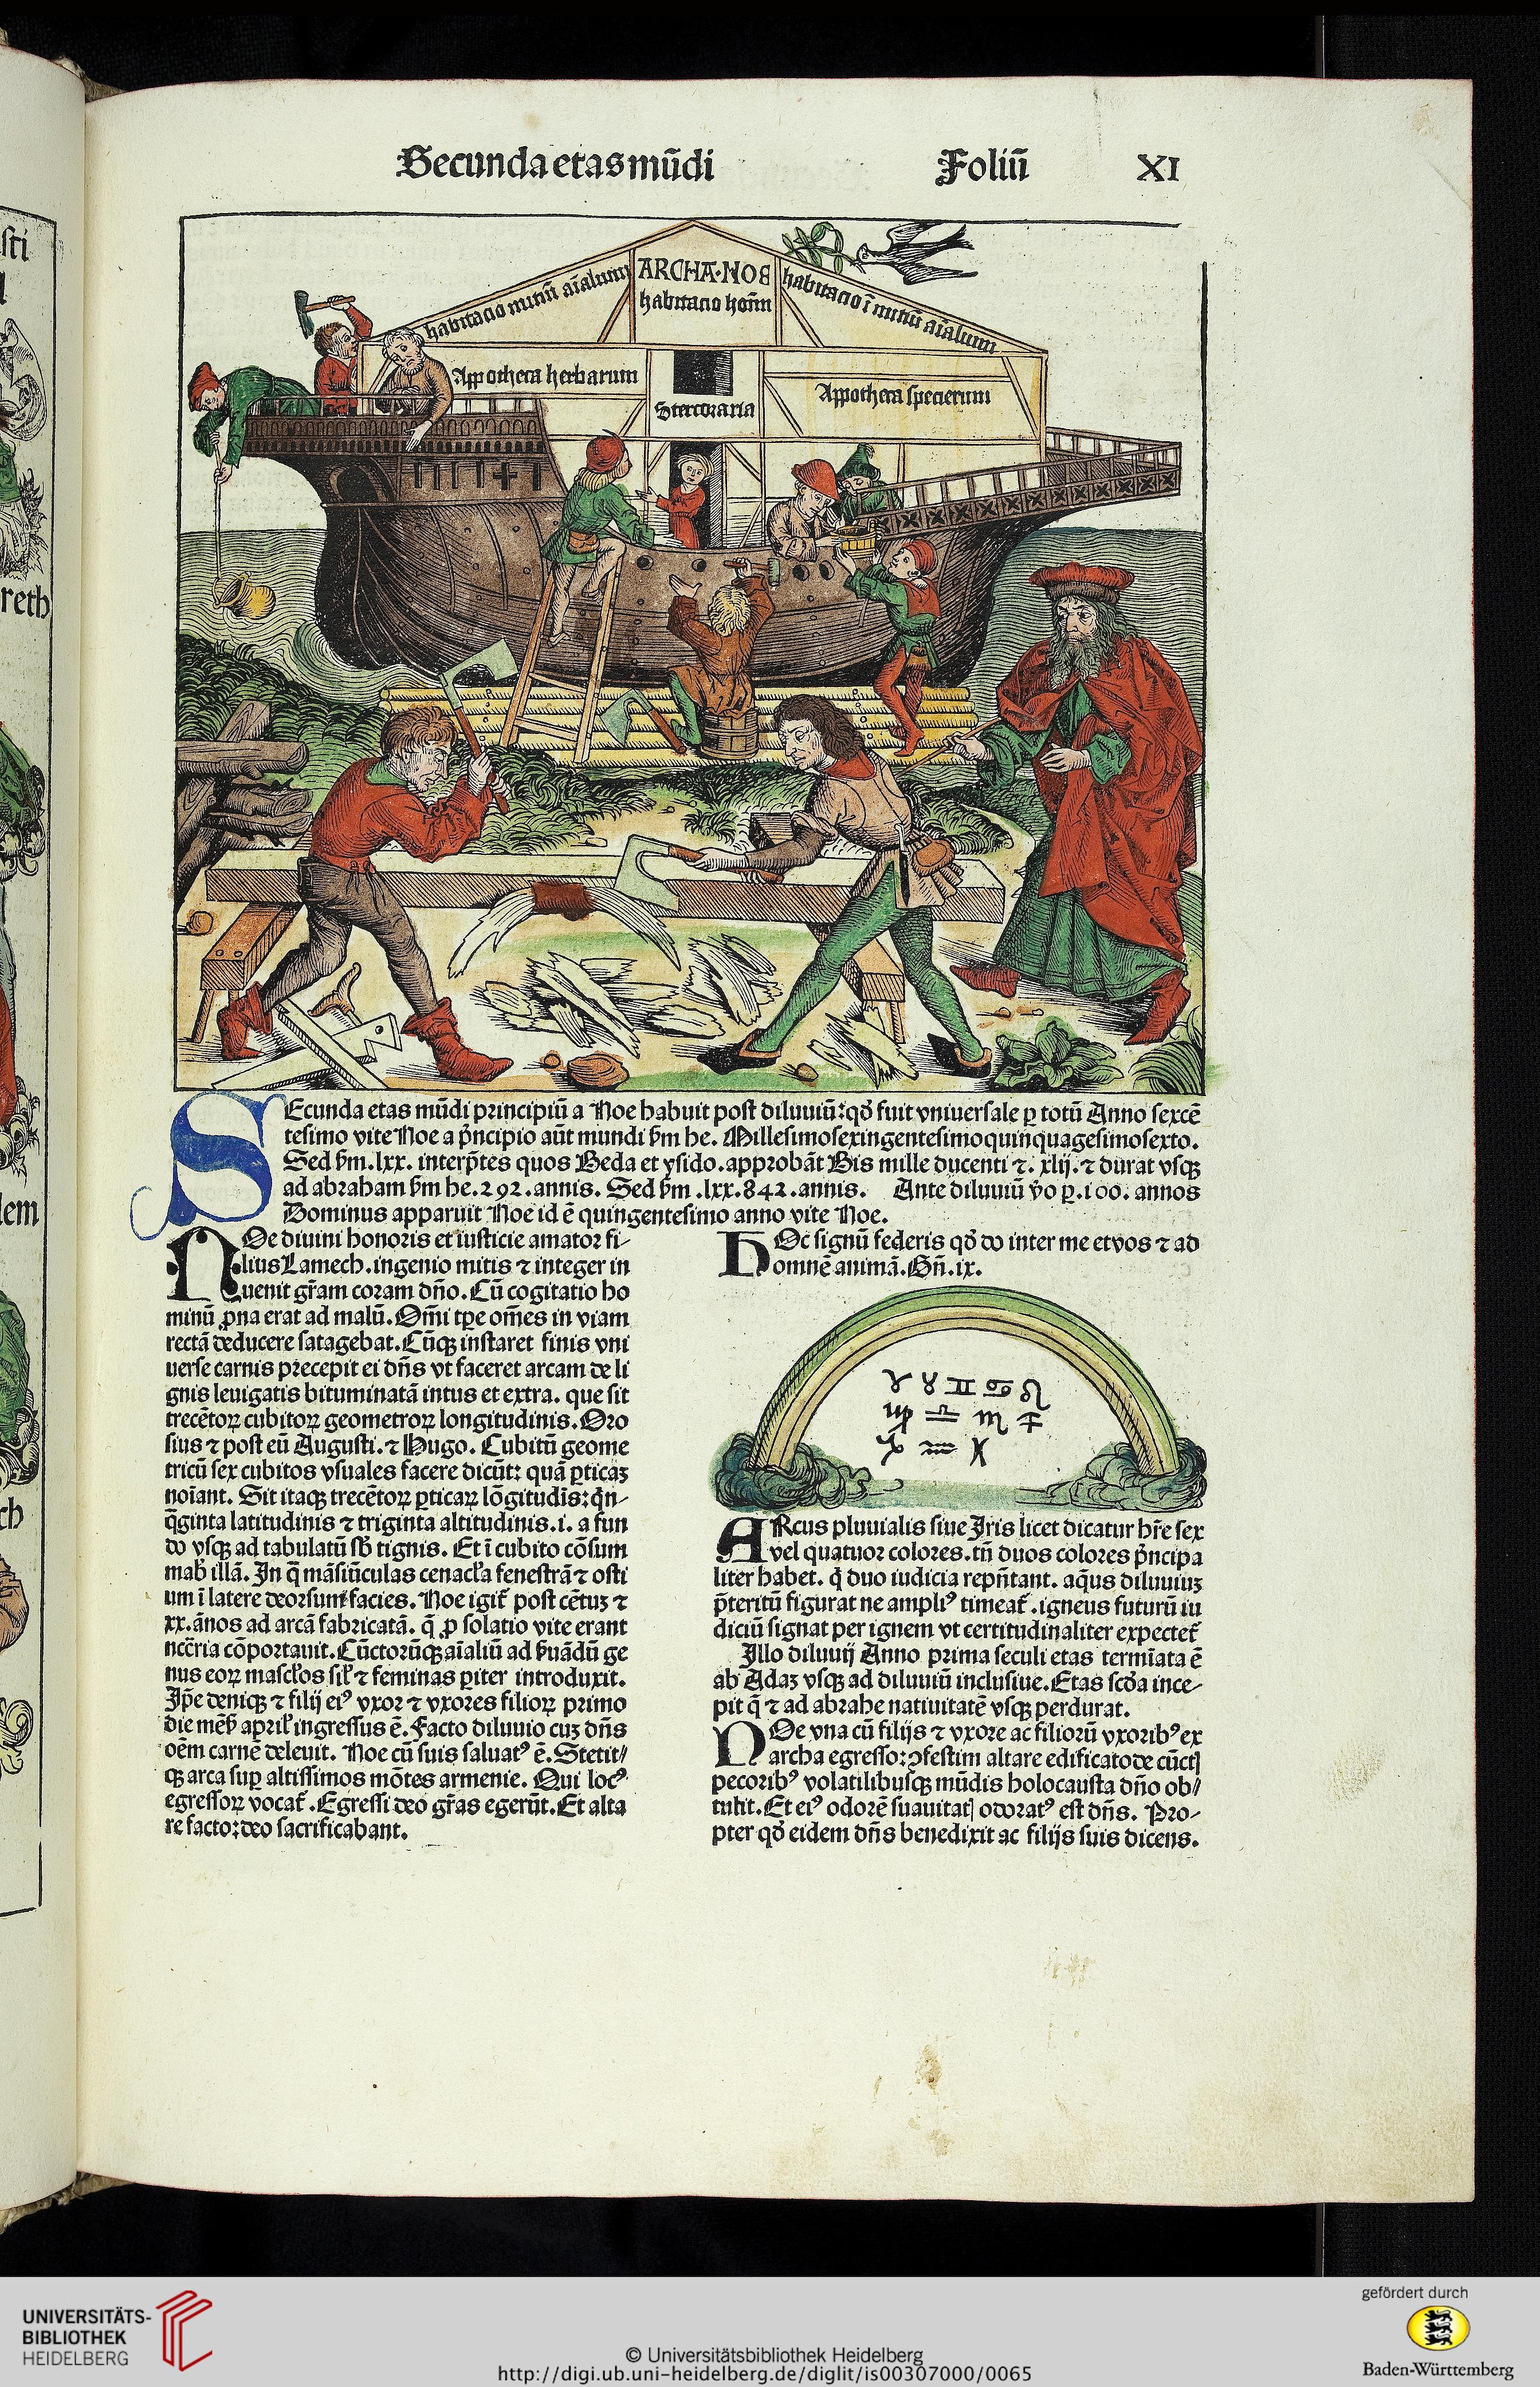 Secunda etas mūdi Foliū XI
ARCHA·NOE
habitatio hoīm
habitatio mitiū aīalium
habitatio ī mitiū aīalium
Appotheca herbarum
Stercoraria
Appotheca specierum
SEcunda etas mūdi principiū a Noe habuit post diluuiū: qđ fuit vniuersale ꝑ totū Anno sexcē
tesimo vite Noe a p̄ncipio aūt mundi ẜm he. Millesimosexingentesimoquinquagesimosexto.
Sed ẜm .lxx. interp̄tes quos Beda et ysido. approbāt Bis mille ducenti ⁊. xlij. ⁊ durat vsqꝫ
ad abraham ẜm he. 292. annis. Sed ẜm .lxx. 842. annis. Ante diluuiū v̄o ꝑ .100. annos
Dominus apparuit Noe id ē quingentesimo anno vite Noe.
NOe diuini honoris et iusticie amator fi-
lius Lamech. ingenio mitis ⁊ integer in
uenit gr̄am coram dn̄o. Cū cogitatio ho
minū ꝓna erat ad malū. Om̄i tꝑe om̄es in viam
rectā deducere satagebat. Cūqꝫ instaret finis vni
uerse carnis precepit ei dn̄s vt faceret arcam de li
gnis leuigatis bituminatā intus et extra. que sit
trecētoꝝ cubitoꝝ geometroꝝ longitudinis. Oro
sius ⁊ post eū Augusti. ⁊ Hugo. Cubitū geome
tricū sex cubitos vsuales facere dicūt: quā ꝑticaꝫ
noīant. Sit itaqꝫ trecētoꝝ ꝑticaꝝ lōgitudīs: qn̄-
q̄ginta latitudinis ⁊ triginta altitudinis. i. a fun
do vsqꝫ ad tabulatū sb̄ tignis. Et ī cubito cōsum
mab̄ illā. In q̄ māsiūculas cenacl̄a fenestrā ⁊ osti
um ī latere deorsum facies. Noe igit̄ post cētuꝫ ⁊
xx. ānos ad arcā fabricatā. q̄ ꝓ solatio vite erant
nccr̄ia cōportauit. Cūctorūqꝫ aīaliū ad ẜuādū ge
nus eoꝝ mascl̄os sil̄ ⁊ feminas ꝑiter introduxit.
Ip̄e deniqꝫ ⁊ filij eiꝰ vxor ⁊ vxores filioꝝ primo
die mēẜ april̄ ingressus ē. Facto diluuio cuꝫ dn̄s
oēm carnē deleuit. Noe cū suis saluatꝰ ē. Stetit//
qꝫ arca suꝑ altissimos mōtes armenie. Qui locꝰ
egressoꝝ vocat̄. Egressi deo gr̄as egerūt. Et alta
re facto: deo sacrificabant.
HOc signū federis qđ do inter me et vos ⁊ ad
omnē animā. Gn̄. ix.
♈ ♉ ♊ ♋ ♌
♍ ♎ ♏ ♐
♑ ♒ ♓
ARcus pluuialis siue Iris licet dicatur hr̄e sex
vel quatuor colores. tn̄ duos colores p̄ncipa
liter habet. q̄ duo iudicia repn̄tant. aq̄us diluuiuꝫ
p̄teritū figurat ne ampliꝰ timeat̄. igneus futurū iu
diciū signat per ignem vt certitudinaliter expectet̄
Illo diluuij Anno prima seculi etas termīata ē
ab Adaꝫ vsqꝫ ad diluuiū inclusiue. Etas scđa ince-
pit q̄ ⁊ ad abrahe natiuitatē vsqꝫ perdurat.
NOe vna cū filijs ⁊ vxore ac filiorū vxoribꝰ ex
archa egresso: ꝯfestim altare edificato de cūctꝭ
pecoribꝰ volatilibusqꝫ mūdis holocausta dn̄o ob//
tulit. Et eiꝰ odorē suauitatꝭ odoratꝰ est dn̄s. Pro-
pter qđ eidem dn̄s benedixit ac filijs suis dicens.
sti
reth
lem
ch
UNIVERSITÄTS-
BIBLIOTHEK
HEIDELBERG
© Universitätsbibliothek Heidelberg
http://digi.ub.uni-heidelberg.de/diglit/is00307000/0065
gefördert durch
Baden-Württemberg